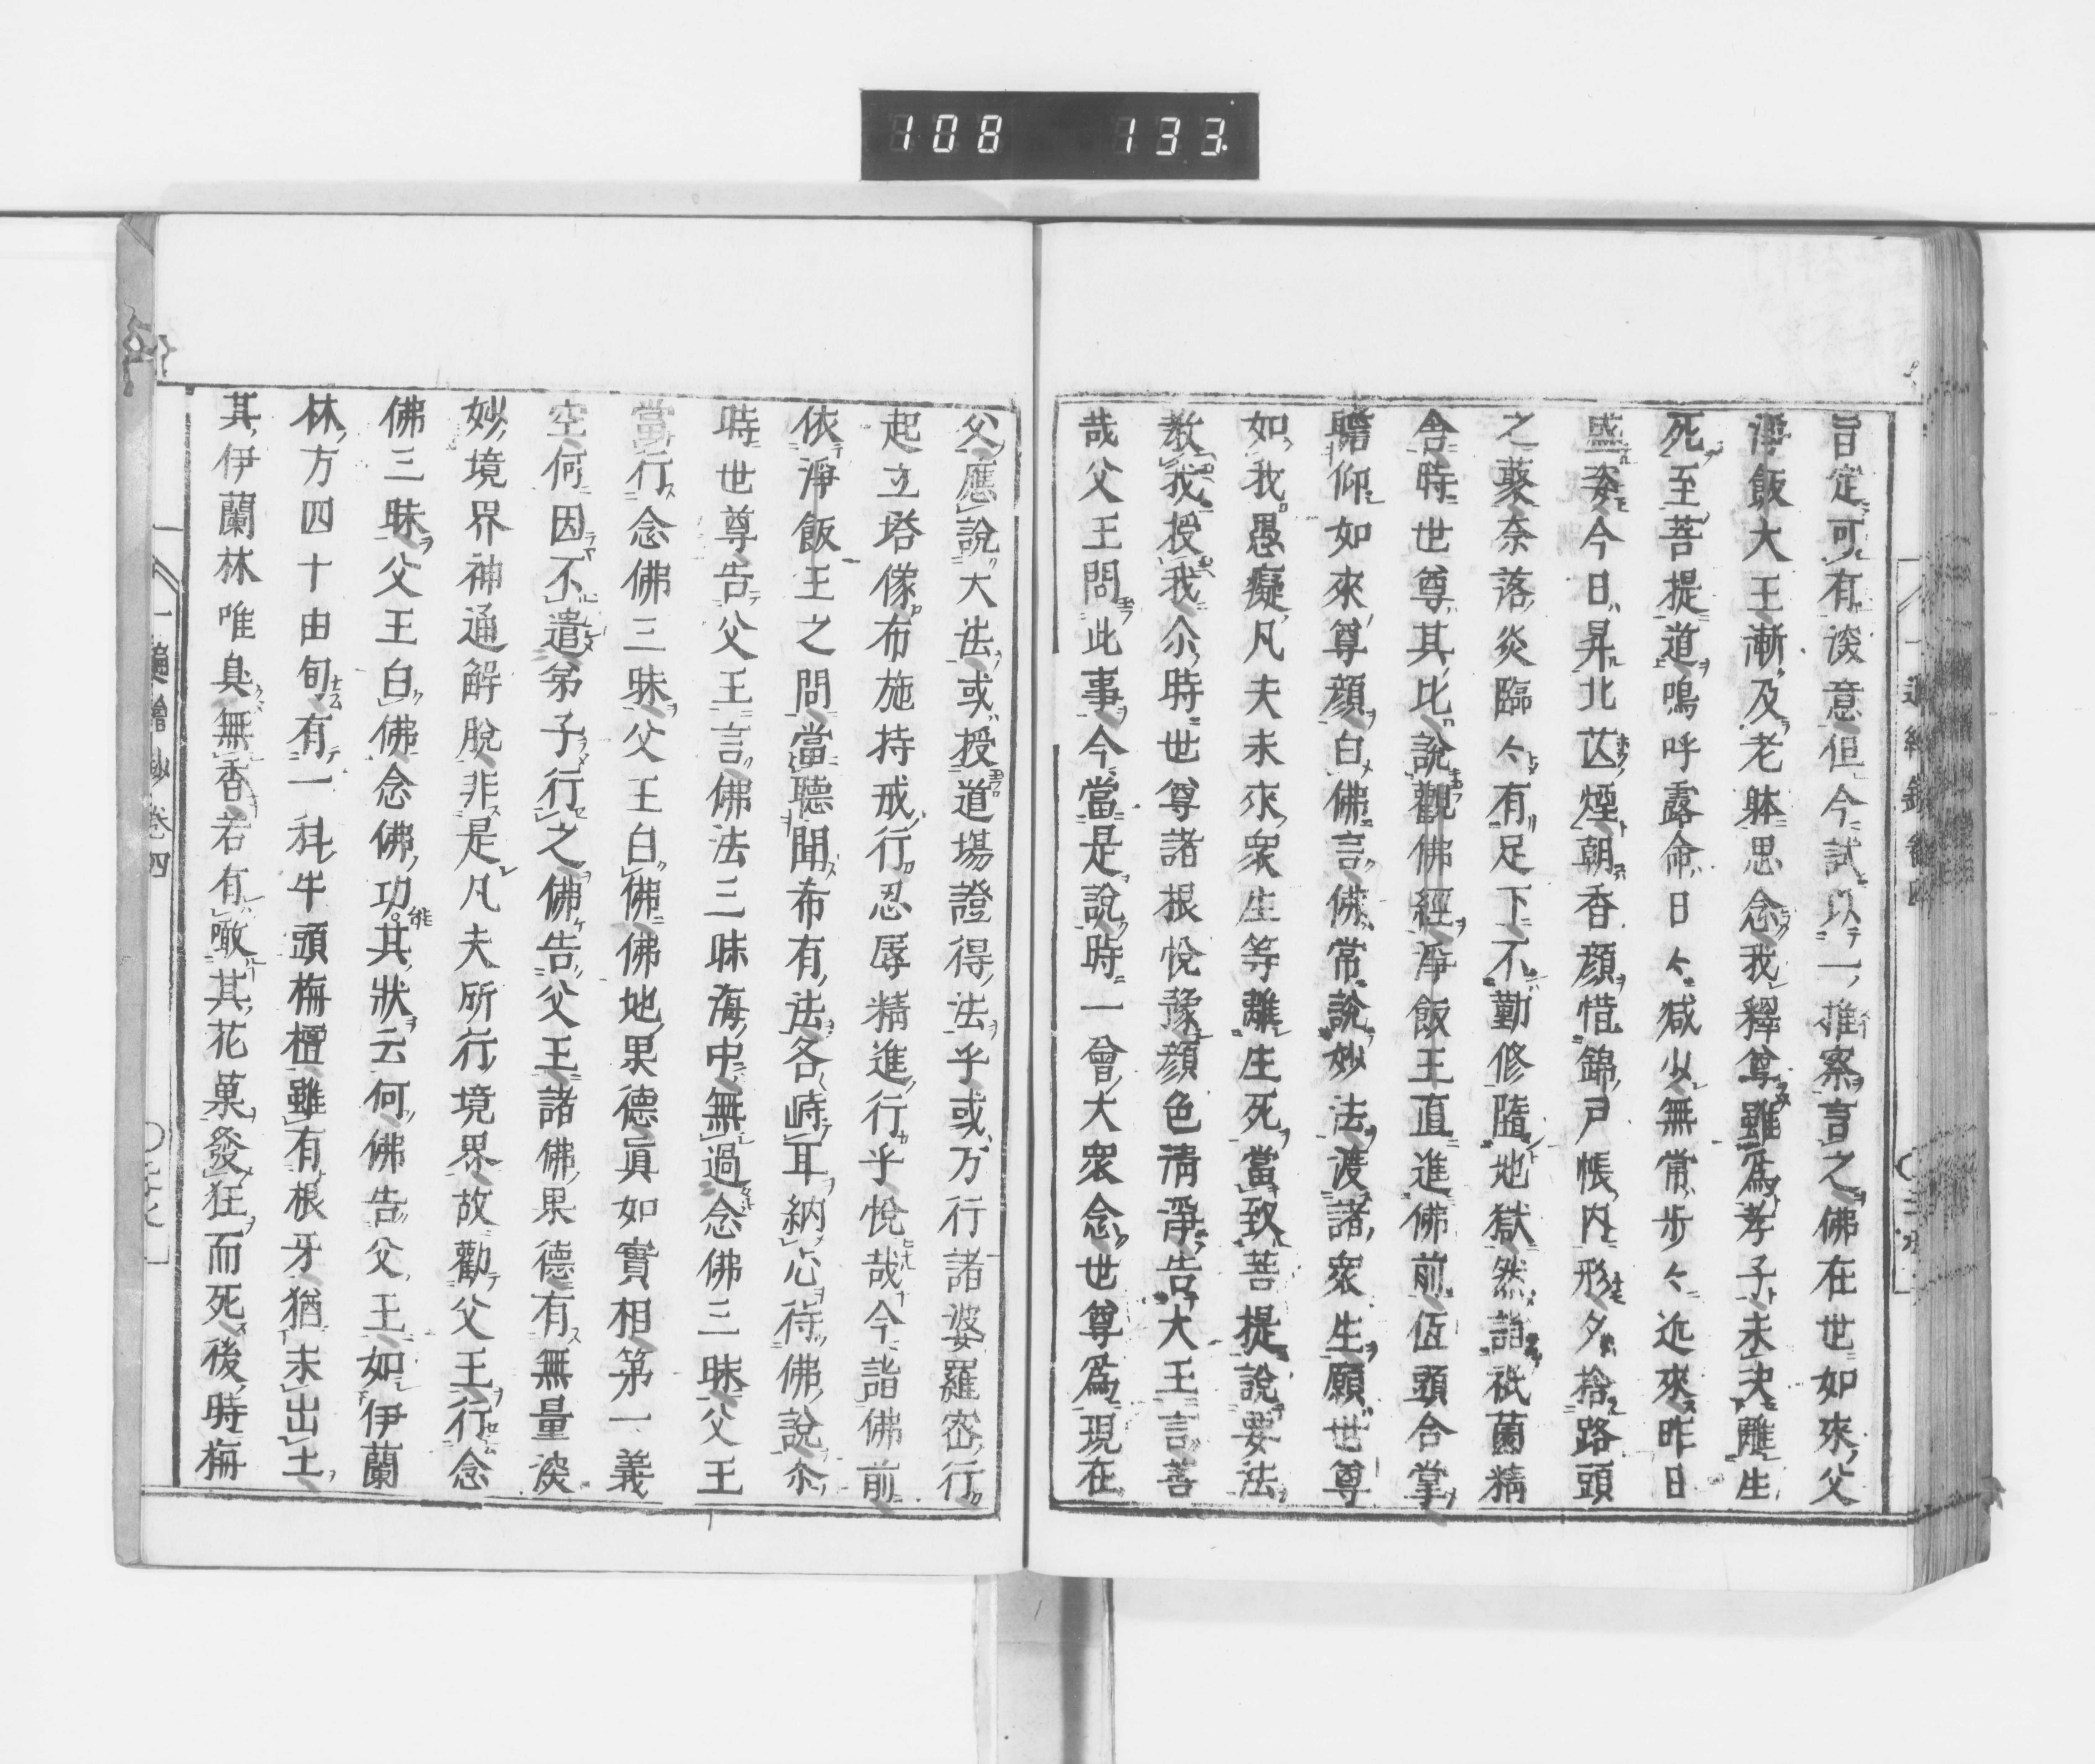 108 133
旨定可有談意但今試以一推察言之佛在世如來父
淨飯大王漸及老躰思念我釋尊雖爲孝子未决離生
死至菩提道嗚呼露命日々减少無常步々近來昨日
盛姿今日昇北苡煙朝香顔惜錦戸帳内形夕捨路頭
之藂奈落炎臨々有足下不勤修墮地獄然詣祇薗精
舎時世尊其比説觀佛經淨飯王直進佛前低頭合掌
瞻仰如來尊顔白佛言佛常説妙法渡諸衆生願世尊
如我愚癡凡夫未來衆生等離生死當致菩提説要法
教我授我尒時世尊諸根悦豫顔色清淨告大王言善
哉父王問此事今當是説時一會大衆念世尊爲現在
父應説大法或授道場證得法乎或万行諸婆羅密行
起立塔像布施持戒行忍辱精進行乎悦哉今詣佛前
依淨飯王之問當聽聞布有法各峙耳納心待佛説尒
時世尊告父王言佛法三昧海中無過念佛三昧父王
當行念佛三昧父王白佛佛地果德眞如實相第一義
空何因不遣弟子行之佛告父王諸佛果德有無量深
妙境界神通解脱非是凡夫所行境界故勸父王行念
佛三昧父王白佛念佛功其狀云何佛告父王如伊蘭
林方四十由旬有一科牛頭栴檀雖有根牙猶未出土
其伊蘭林唯臭無香若有噉其花菓發狂而死後時栴
一遍繪鈔卷四